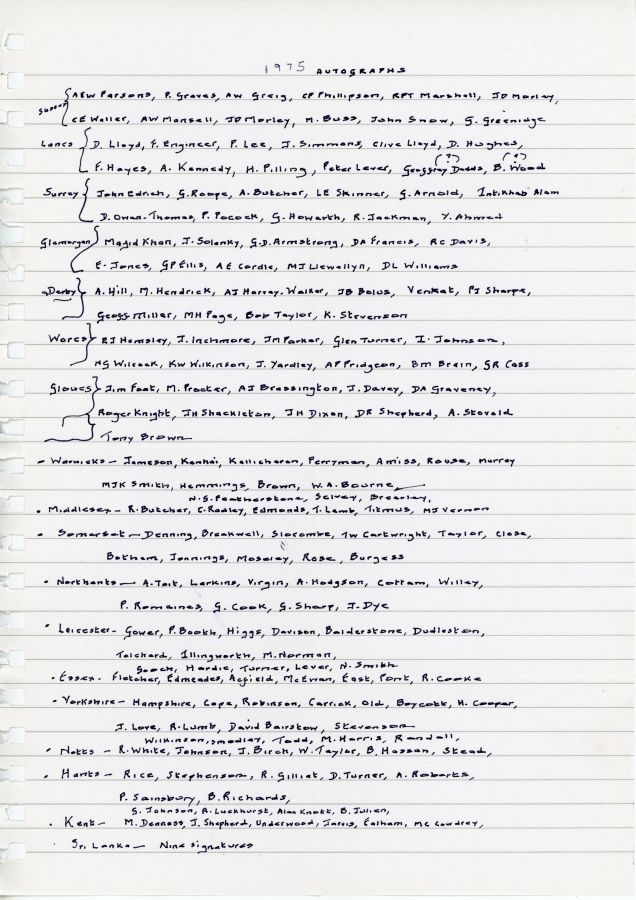 1975 AUTOGRAPHS
Sussex AEW Parsons, P. Graves, AW Greig, CP Phillipson, RPT Marshall, JD Morley,
CE Waller, AW Mansell, JD Morley, M. Buss, John Snow, G. Greenidge
Lancs D. Lloyd, F. Engineer, P. Lee, J. Simmons, Clive Lloyd, D. Hughes,
F. Hayes, A. Kennedy, H. Pilling, Peter Lever, Geoffrey Dodds, (?) B. Wood (?)
Surrey John Edrich, G. Roope, A. Butcher, LE Skinner, G. Arnold, Intikhab Alam
D. Owen-Thomas, P. Pocock, G. Howarth, R. Jackman, Y. Ahmed
Glamorgan Majid Khan, J. Solanky, G.D. Armstrong, DA Francis, RC Davis,
E. Jones, GP Ellis, AE Cordle, MJ Llewellyn, DL Williams
Derby A. Hill, M. Hendrick, AJ Harvey-Walker, JB Bolus, Venkat, PJ Sharpe,
Geoff Miller, MH Page, Bob Taylor, K. Stevenson
Worcs EJ Hemsley, J. Inchmore, JM Parker, Glen Turner, I. Johnson,
HG Wilcock, KW Wilkinson, J. Yardley, AP Pridgeon, BM Brain, GR Cass
Gloucs Jim Foat, M. Procter, AJ Brassington, J. Davey, DA Graveney,
Roger Knight, JH Shackleton, JH Dixon, DR Shepherd, A. Stovold
Tony Brown
• Warwicks - Jameson, Kanhai, Kallicharan, Perryman, Amiss, Rouse, Murray
MJK Smith, Hemmings, Brown, W.A. Bourne
N.G. Featherstone, Selvey, Brearley,
• Middlesex - R. Butcher, C. Radley, Edmonds, T. Lamb, Titmus, MJ Vernon
• Somerset - Denning, Breakwell, Slocombe, TW Cartwright, Taylor, Close,
Botham, Jennings, Moseley, Rose, Burgess
• Northants - A. Tait, Larkins, Virgin, A. Hodgson, Cottam, Willey,
P. Romaines, G. Cook, G. Sharp, J. Dye
• Leicester - Gower, P. Booth, Higgs, Davison, Balderstone, Dudleston,
Tolchard, Illingworth, M. Norman,
Gooch, Hardie, Turner, Lever, N. Smith
• Essex - Fletcher, Edmeades, Acfield, McEwan, East, Pont, R. Cooke
• Yorkshire - Hampshire, Cope, Robinson, Carrick, Old, Boycott, H. Cooper,
J. Love, R. Lumb, David Bairstow, Stevenson
Wilkinson, Smedley, Todd, M. Harris, Randall,
• Notts - R. White, Johnson, J. Birch, W. Taylor, B. Hassan, Stead,
• Hants - Rice, Stephenson, R. Gilliat, D. Turner, A. Roberts,
P. Sainsbury, B. Richards,
G. Johnson, B. Luckhurst, Alan Knott, B. Julien,
• Kent - M. Denness, J. Shepherd, Underwood, Jarvis, Ealham, MC Cowdrey,
Sri Lanka - Nine signatures